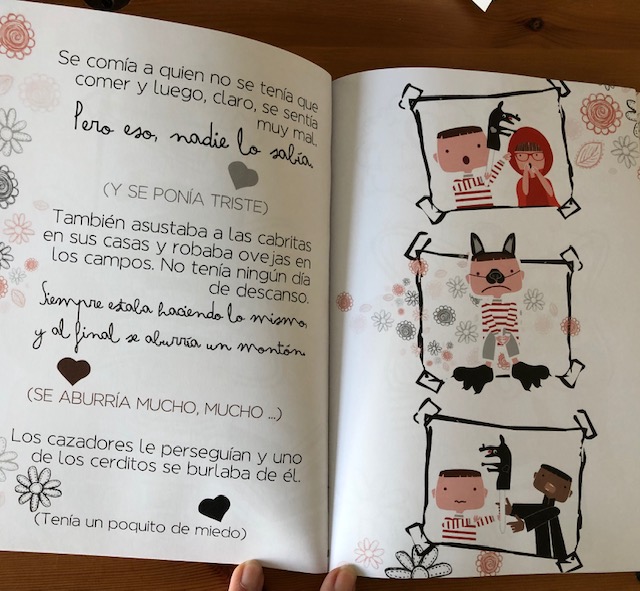 Se comía a quien no se tenía que
comer y luego, claro, se sentía
muy mal.
Pero eso, nadie lo sabía.
(Y SE PONÍA TRISTE)
También asustaba a las cabritas
en sus casas y robaba ovejas en
los campos. No tenía ningún día
de descanso.
Siempre estaba haciendo lo mismo,
y al final se aburría un montón.
(SE ABURRÍA MUCHO, MUCHO ...)
Los cazadores le perseguían y uno
de los cerditos se burlaba de él.
(Tenía un poquito de miedo)